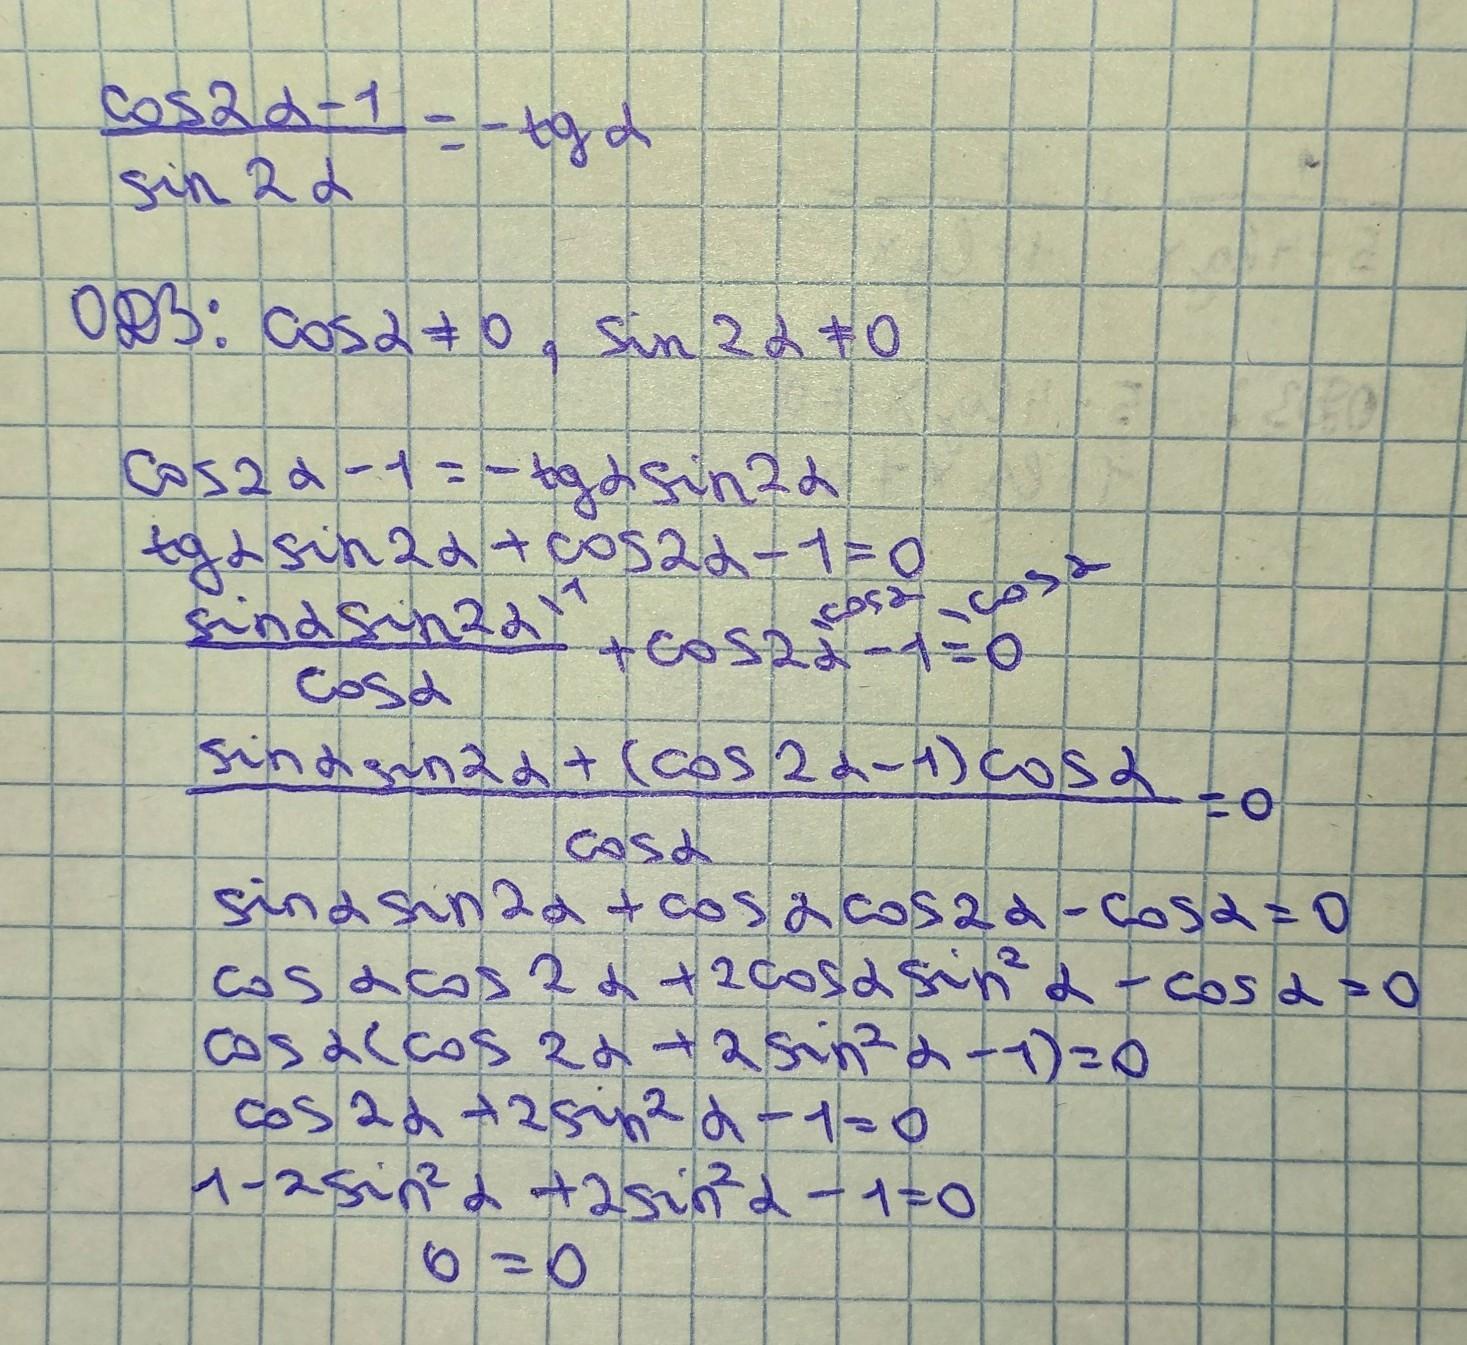 cos2α-1
sin2α
= -tgα
ОДЗ: cosα≠0, sin2α≠0
cos2α-1=-tgαsin2α
tgαsin2α+cos2α-1=0
sinαsin2α\1
cosα
+cos2α\cosα-1=0\cosα
sinαsin2α+(cos2α-1)cosα
cosα
=0
sinαsin2α+cosαcos2α-cosα=0
cosαcos2α+2cosαsin²α-cosα=0
cosα(cos2α+2sin²α-1)=0
cos2α+2sin²α-1=0
1-2sin²α+2sin²α-1=0
0=0